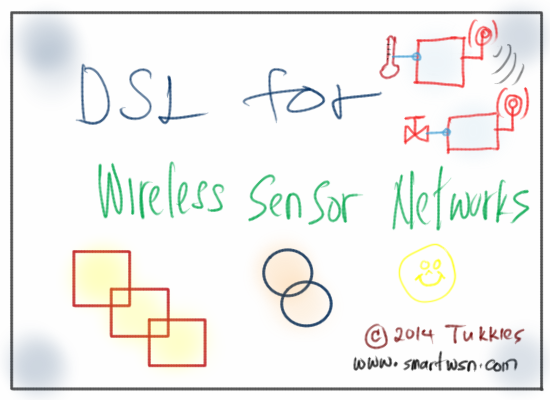 DSL for
Wireless Sensor Networks
© 2014 Tukkies
www.smartwsn.com